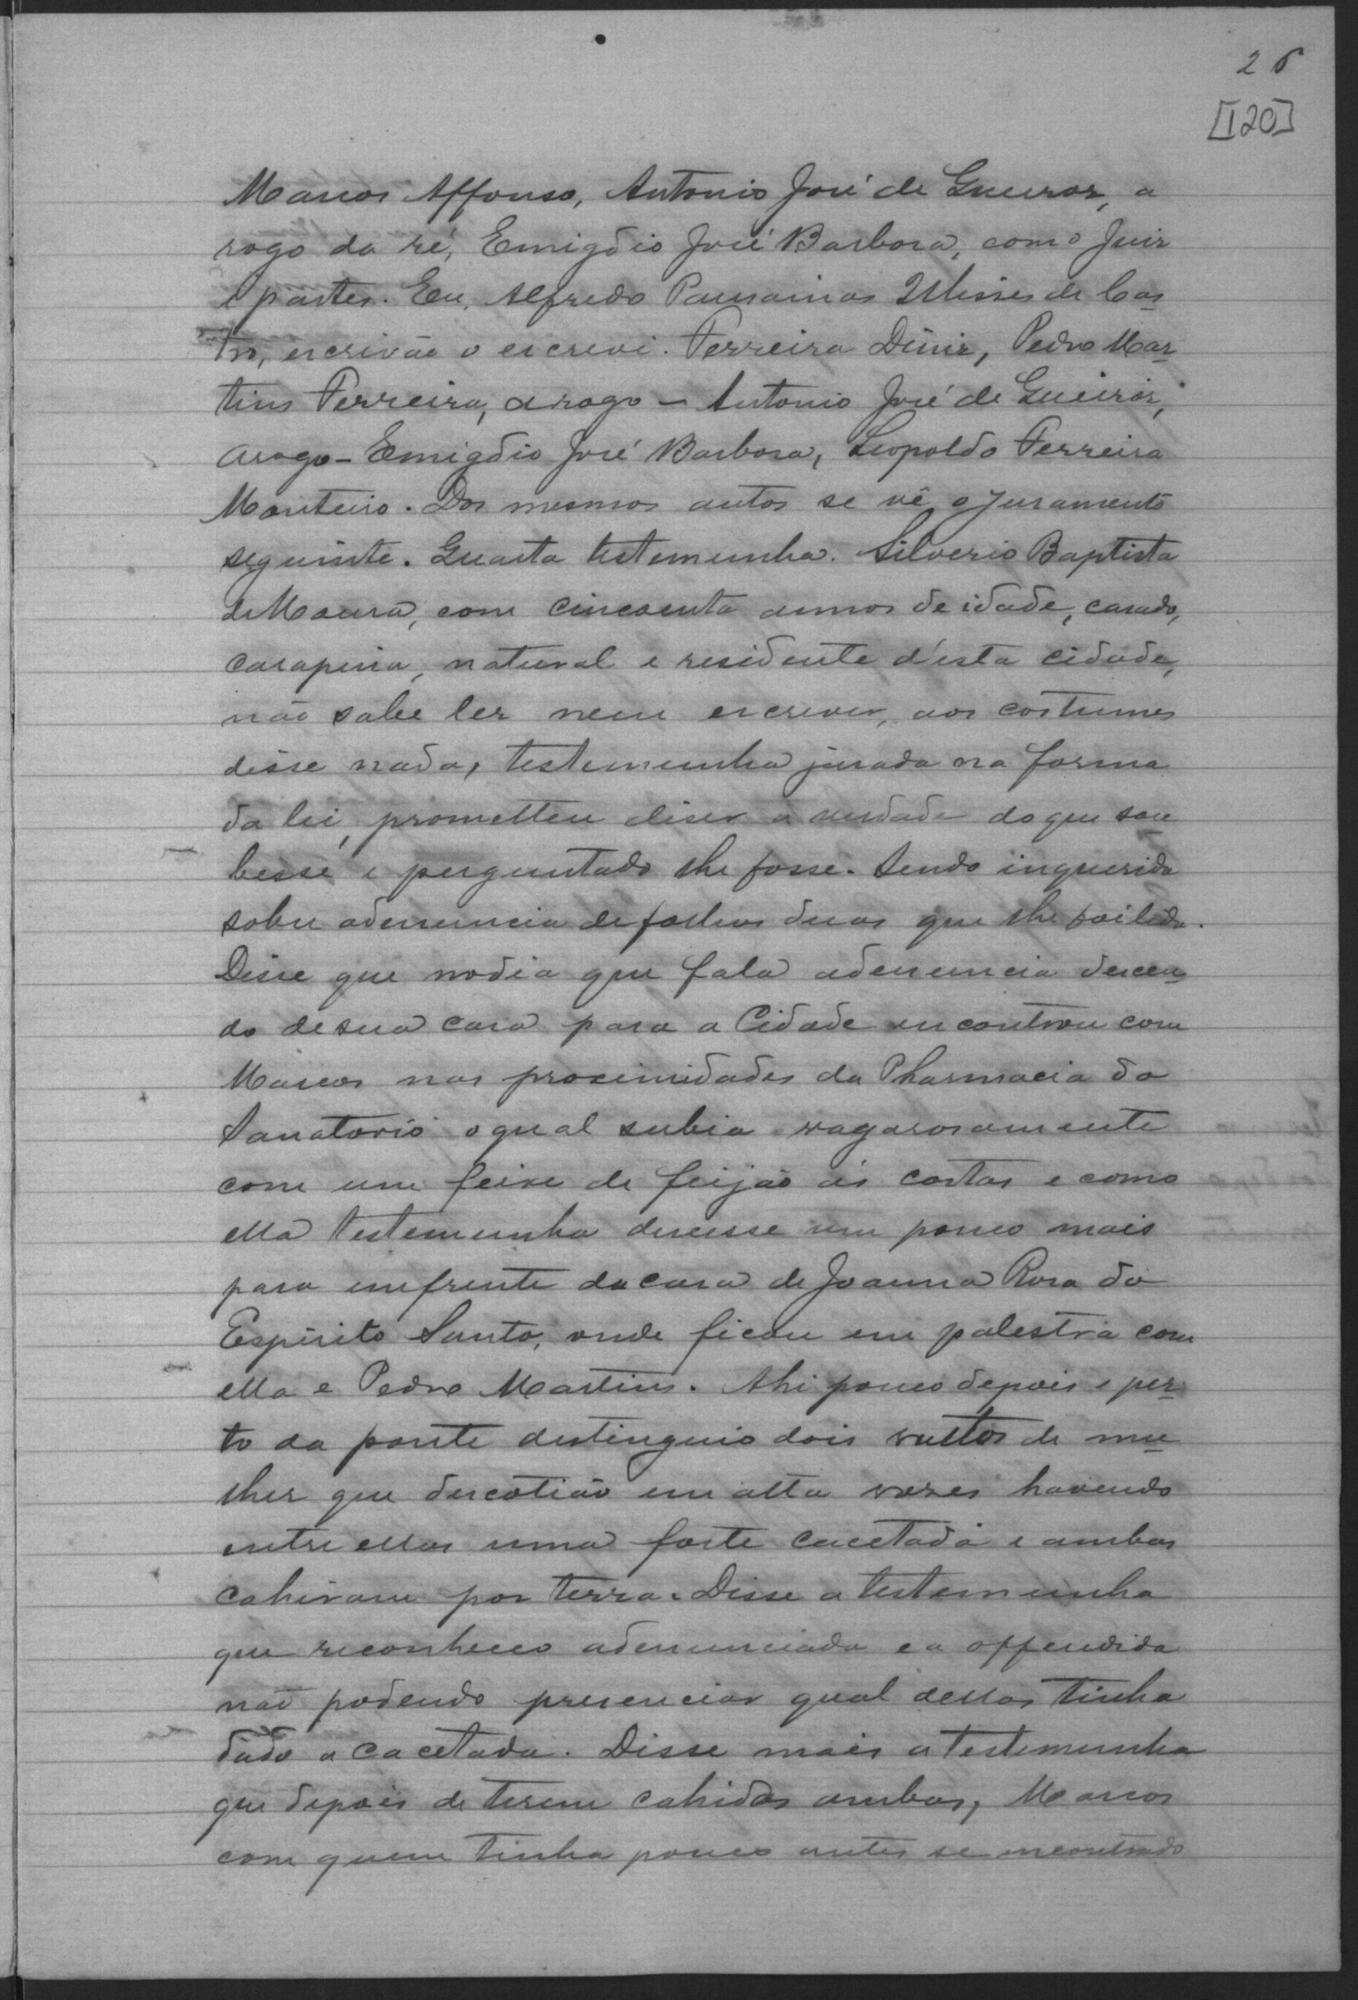 26
[120]
Marcos Affonso, Antonio José de Queiroz, a
rogo da ré, Emigdio José Barbosa, como Juiz
e partes. Eu, Alfredo Pausainas Ulisses de Cas
tro, escrivão o escrevi. Ferreira Diniz, Pedro Mar-
tins Ferreira, a rogo - Antonio José de Queiroz,
arogo - Emigdio José Barbosa, Leopoldo Ferreira
Monteiro. Dos mesmos autos se vê o juramento
seguinte. Quarta testemunha. Silverio Baptista
de Moura, com cincoenta annos de idade, casado,
carapina, natural e residente d'esta cidade,
não sabe ler nem escrever, aos costumes
disse nada, testemunha jurada na forma
da lei, prometteu diser a verdade do que sou
besse e perguntado lhe fosse. Sendo inquerida
sobre adenuncia de folhas duas que lhe foi lida.
Disse que nodia que fala adenuncia descen-
do de sua casa para a Cidade encontrou com
Marcos nas proximidades da Pharmacia do
Sanatorio o qual subia vagarosamente
com um feixe de feijão ás costas e como
ella testemunha descesse um pouco mais
para emfrente da casa de Joanna Rosa do
Espirito Santo, onde ficou em palestra com
ella e Pedro Martins. Ahi pouco depois e per-
to da ponte destinguio dois vultos de mu-
lher que discotião em alta vozes havendo
entre ellas uma forte cacetada e ambas
cahiram por terra. Disse a testemunha
que reconheceo adenunciada e a offendida
não podendo presenciar qual dellas tinha
dado a cacetada. Disse mais a testemunha
que depois de terem cahidas ambas, Marcos
com quem tinha pouco antes se encontrado